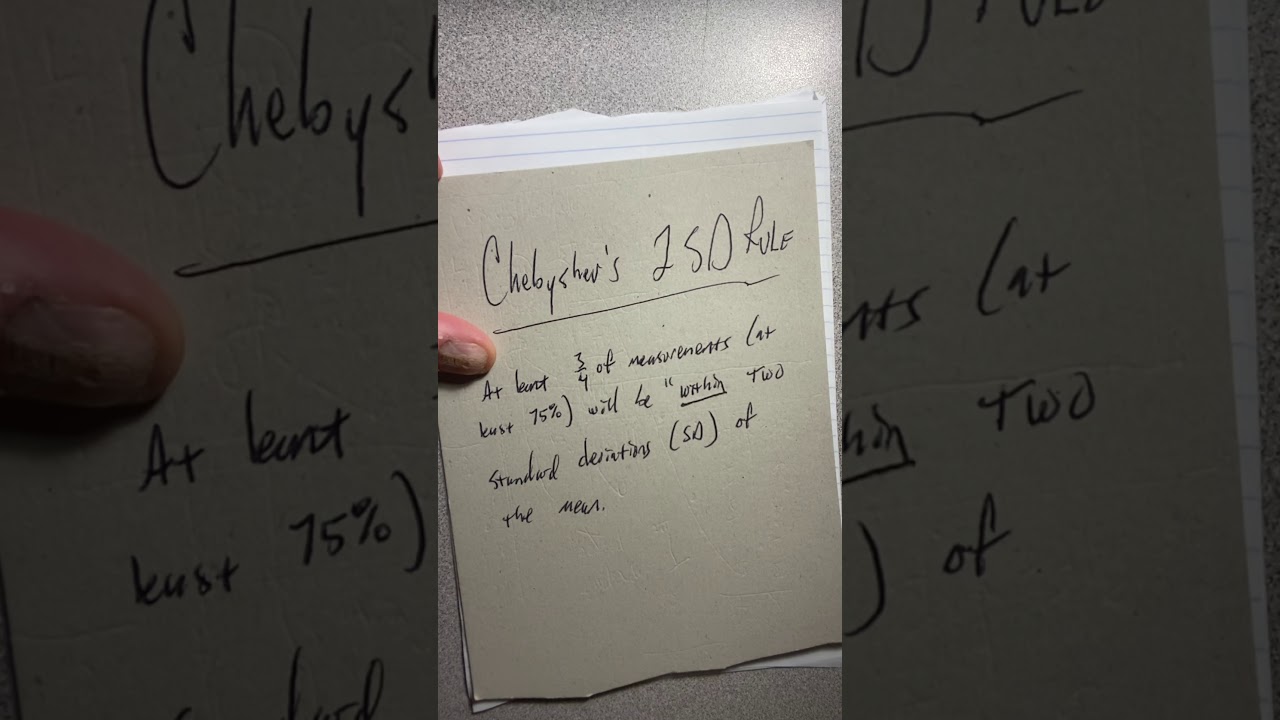 Chebyshev's 2 SD RULE
At least 3/4 of measurements (at
least 75%) will be "within TWO
standard deviations (SD) of
the mean.